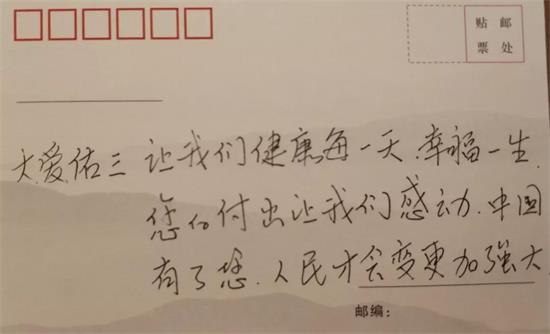 贴 邮
票 处
大爱佑三 让我们健康每一天.幸福一生.
您的付出让我们感动.中国
有了您.人民才会变更加强大
邮编：